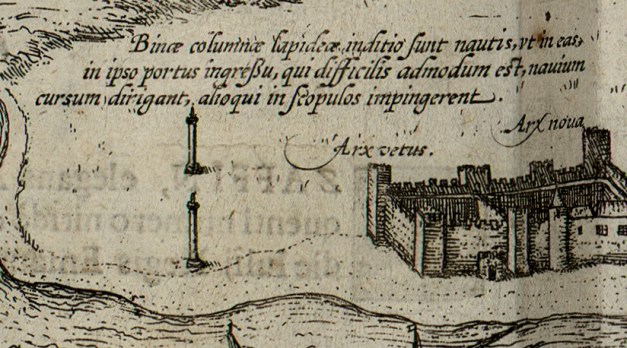 Binæ columnæ lapideæ inditio sunt nautis, vt in eas,
in ipso portus ingreßu, qui difficilis admodum est, nauium
cursum dirigant, alioqui in scopulos impingerent.
Arx noua
Arx vetus.